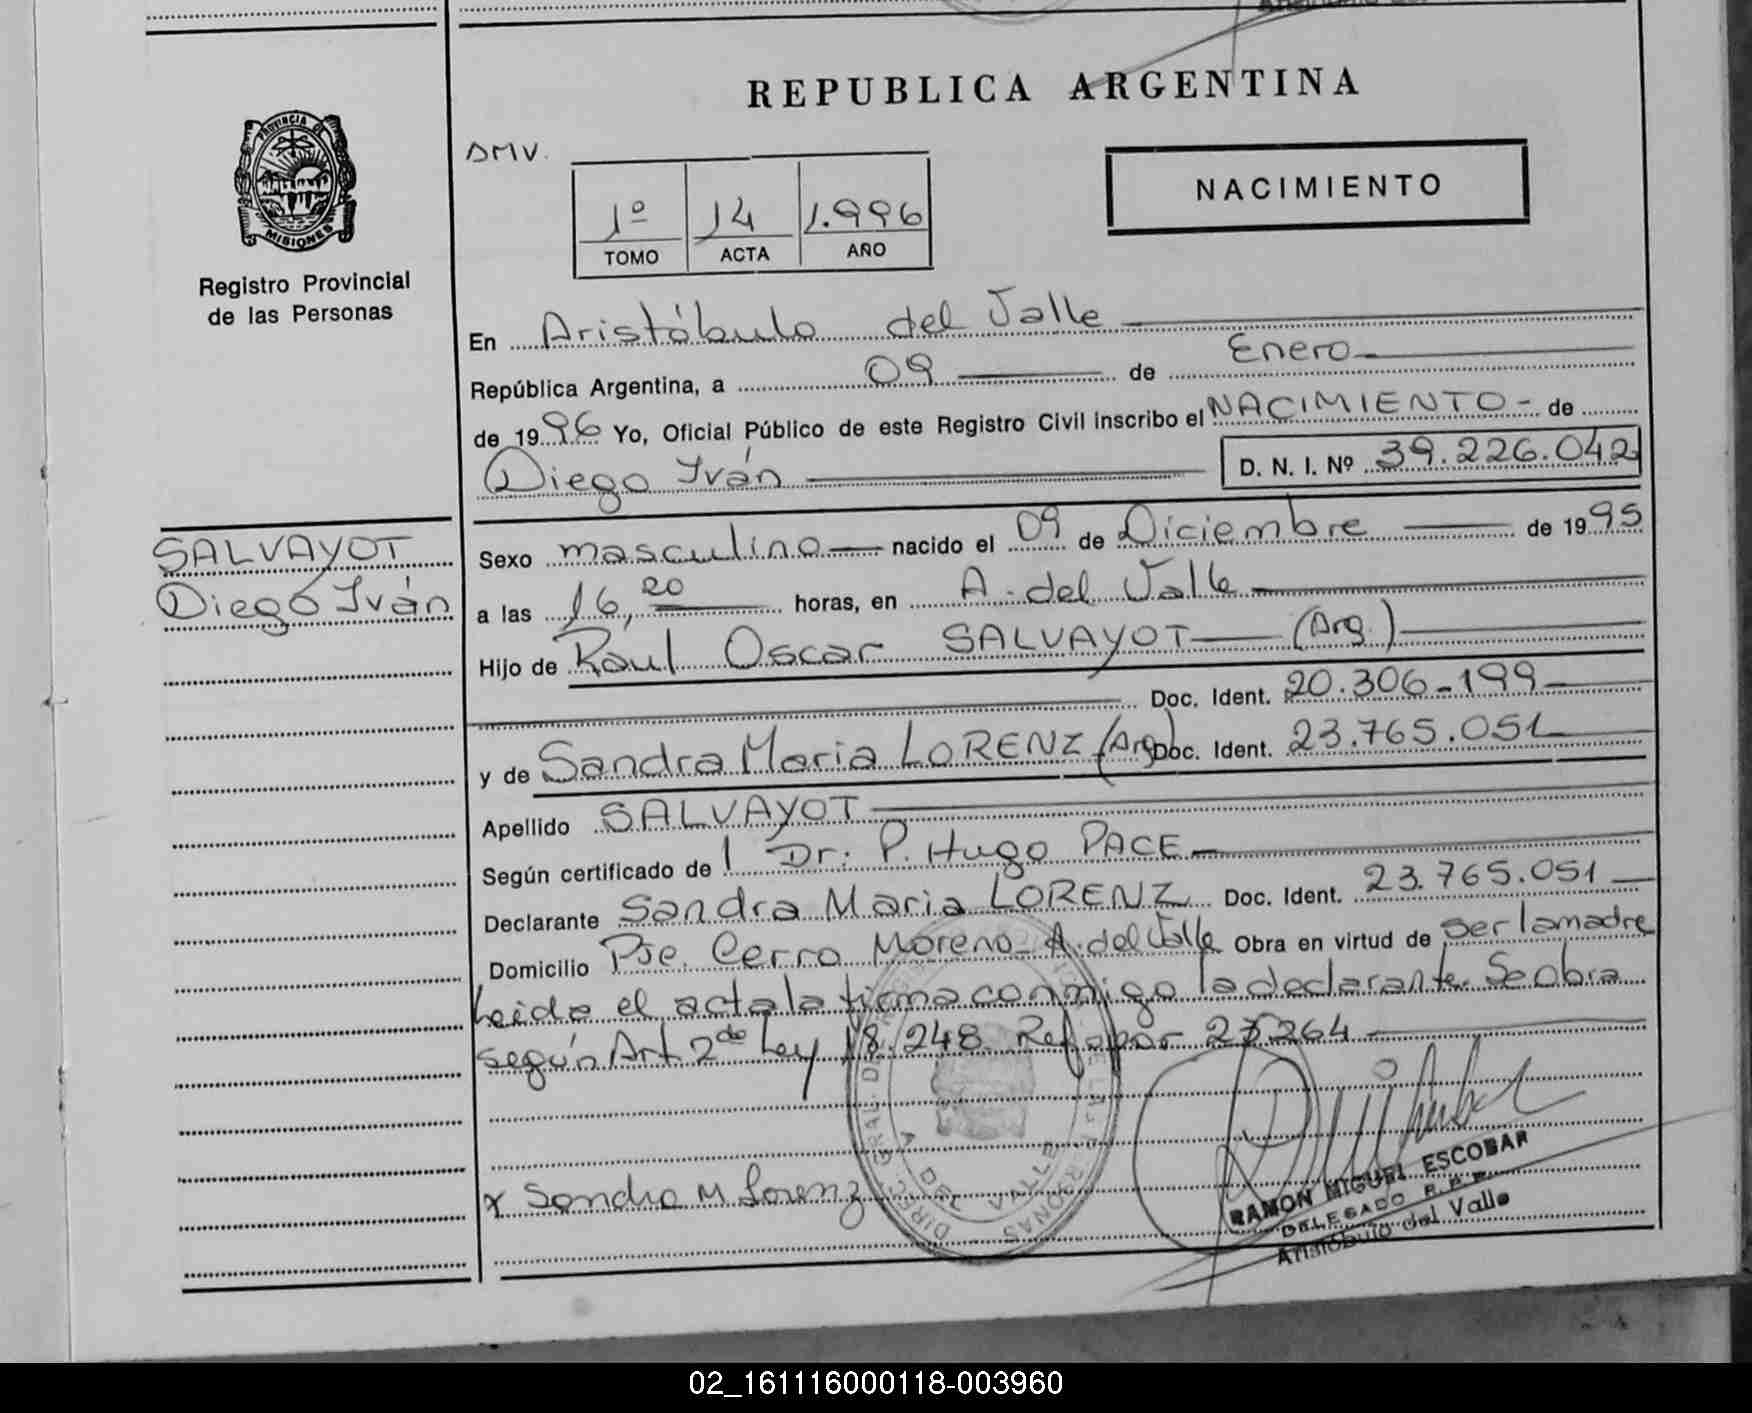 REPUBLICA ARGENTINA
PROVINCIA DE
MISIONES
Registro Provincial
de las Personas
DMV.
NACIMIENTO
1º 14 1.996
TOMO ACTA AÑO
En Aristóbulo del Valle
República Argentina, a 09 de Enero
de 1996 Yo, Oficial Público de este Registro Civil inscribo el NACIMIENTO - de
Diego Iván D. N. I. Nº 39.226.042
SALVAYOT
Diego Iván
Sexo masculino nacido el 09 de Diciembre de 1995
a las 16,20 horas, en A. del Valle
Hijo de Raul Oscar SALVAYOT (Arg.)
Doc. Ident. 20.306-199
y de Sandra Maria LORENZ (Arg) Doc. Ident. 23.765.051
Apellido SALVAYOT
Según certificado de l Dr: P. Hugo PACE
Declarante Sandra Maria LORENZ Doc. Ident. 23.765.051
Domicilio Pje. Cerro Moreno - A. del Valle Obra en virtud de ser la madre
Leida el acta la firma conmigo la declarante. Se obra
según Art. 2º de Ley 18.248. Ref. por 23264
x Sandra M Lorenz
RAMON MIGUEL ESCOBAR
DELEGADO R.P.P.
Aristóbulo del Valle
02_161116000118-003960